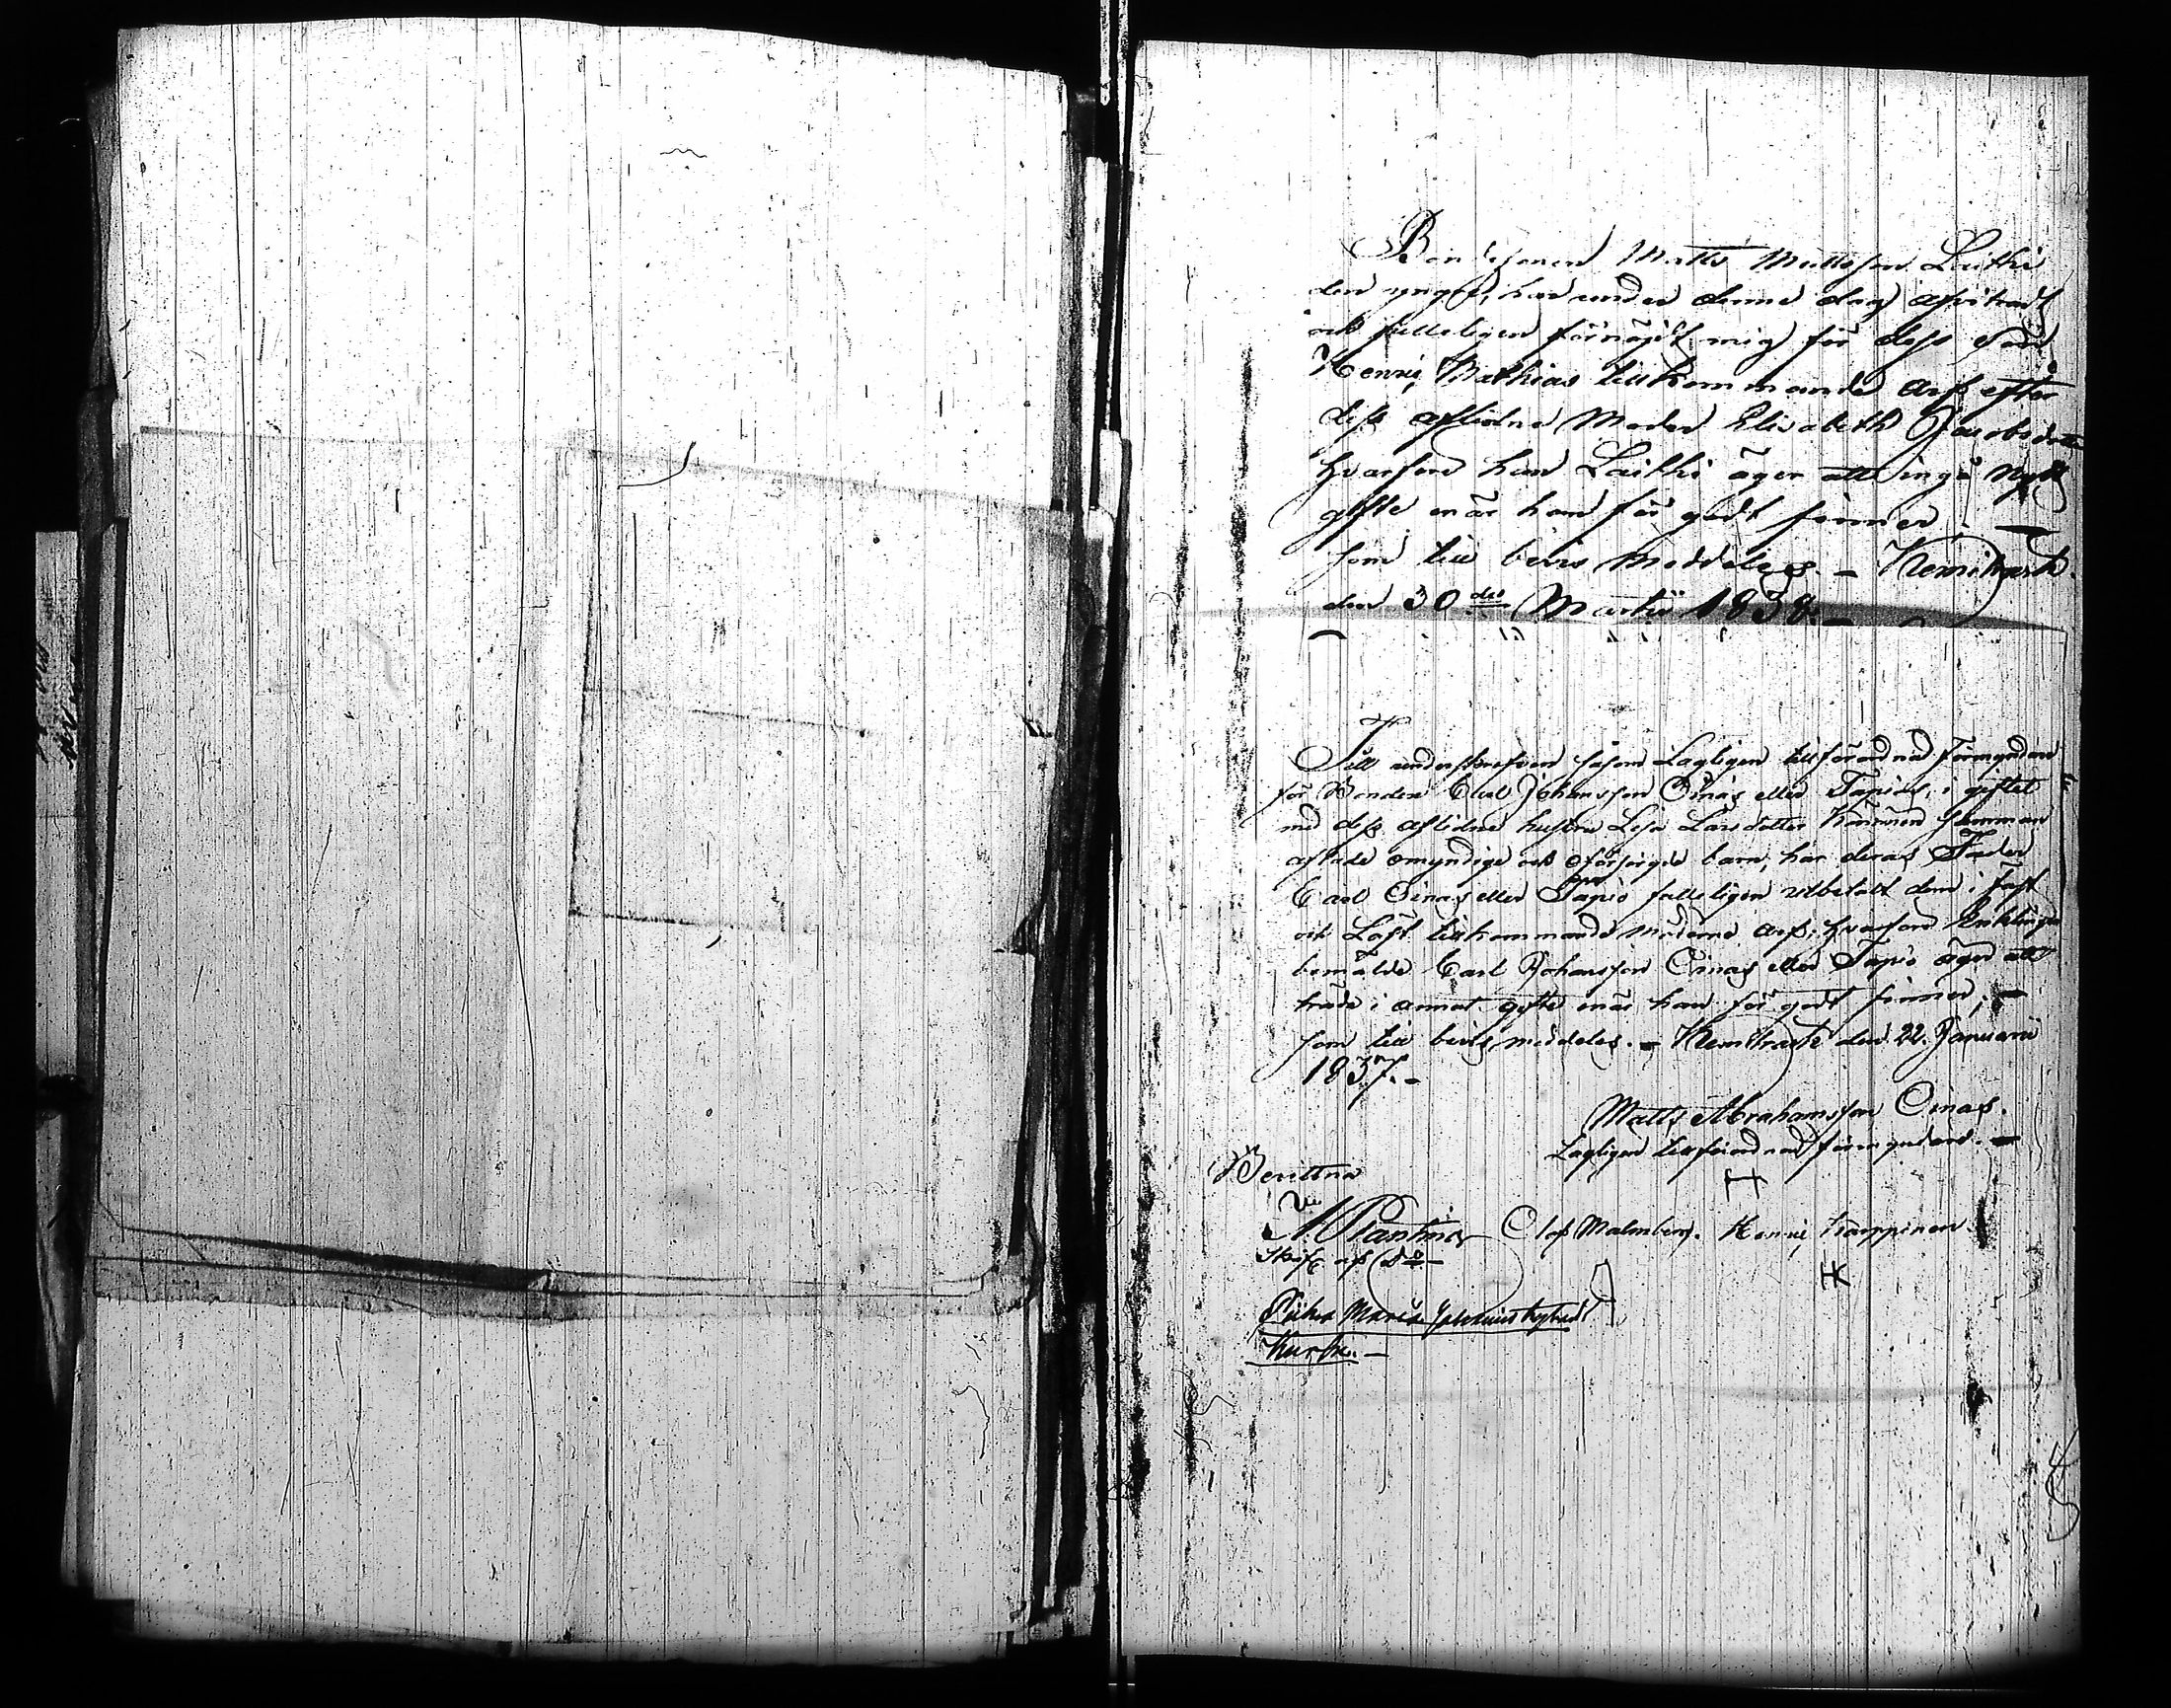 Bondesonen Matts Mattsson Laithi
den yngre, har under denne dag afvitrat
och fulleligen förnöjdt mig för dess Son
Henric Mathias tillkommande arf efter
dess aflidne Moder Elisabeth Jacobsdotter
hvarföre han Laithi äger att ingå nytt
gifte enär han för godt finner. —
som till bevis meddeles. — Kemiträsk
den 30de Martii 1838. —
Till underskrefven såsom Lagligen tillförordnad Förmyndare
för Bonden Carl Johansson Oinas eller Tapios, i giftet
med dess aflidne hustru Lisa Larsdotter Känninen samman
aflade omyndige och oförsörgde barn, har deras Fader
Carl Oinas eller Tapio fulleligen utbetalt dem i fast
och Löst tillkommande möderne arf; hvarföre Enklingen
bemälde Carl Johansson Oinas eller Tapio äger att
träda i annat gifte enär han för godt finner; —
som till bevis meddeles. — Kemiträsk den 22. Januarii
1837. —
Matts Abrahamsson Oinas.
Lagligen tillförordnad förmyndare. —
Bevittna
Olof Malmberg. Henric Karppinen